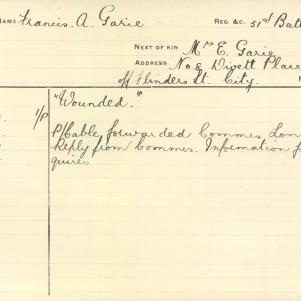 NAME Francis. A. Garie REG. &C. 51st Batt
NEXT OF KIN Mrs E. Garie
ADDRESS No 8 Divett Place
off Flinders St. City.
"Wounded."
1/P P/Cable, forwarded Commes, Lon
Reply from Commes. Information f
quirer